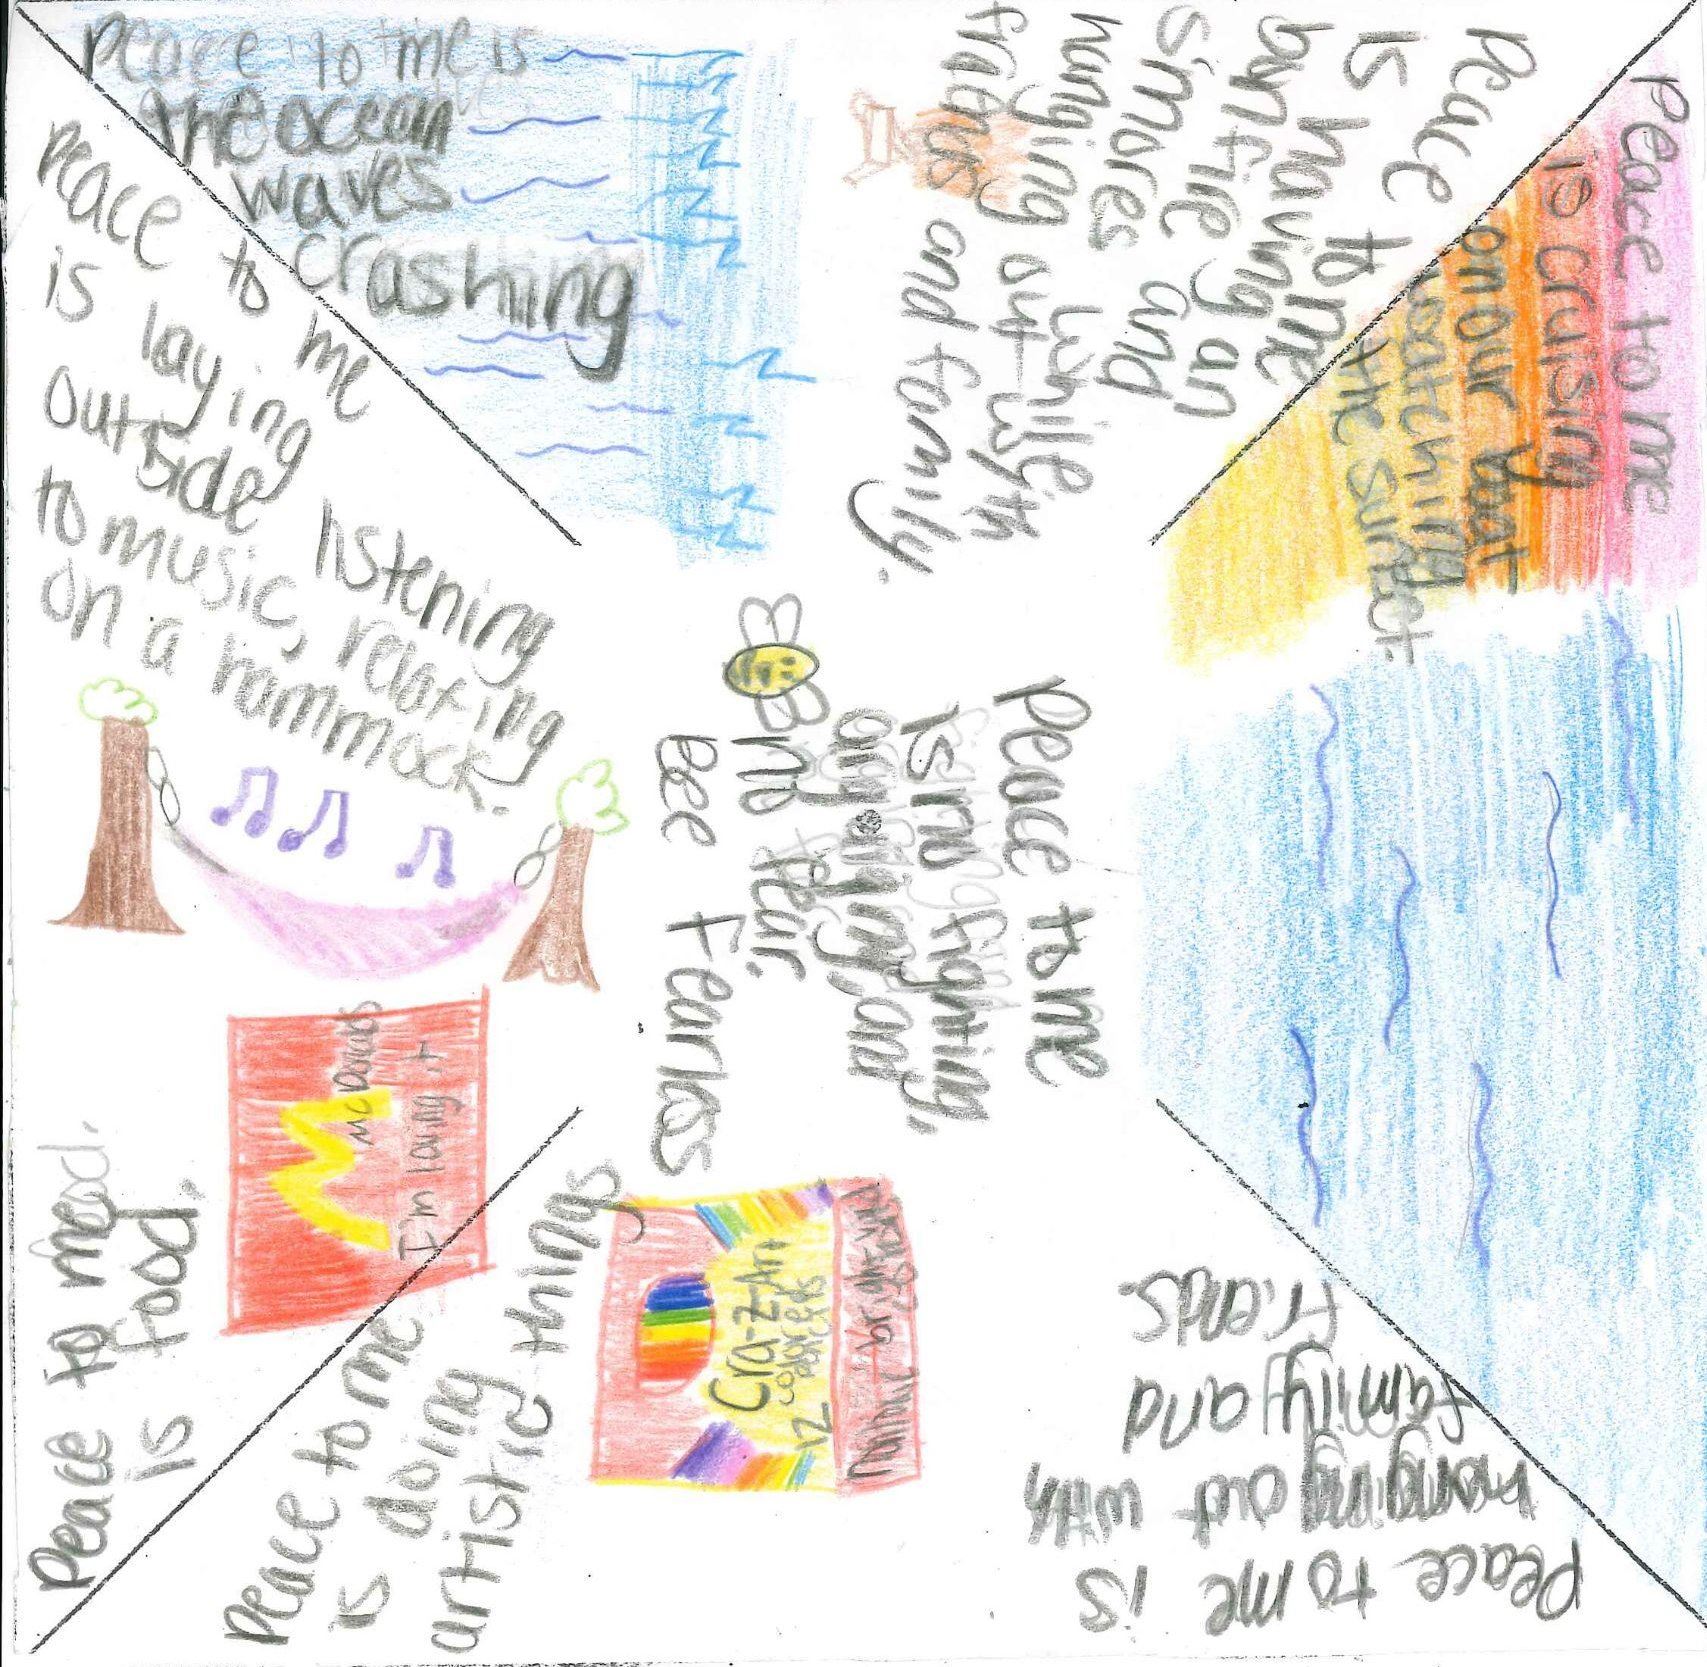 Peace to me is
the ocean
waves
crashing
Peace to me
is laying
outside listening
to music, relaxing
on a hammock.
Peace to me
is having an
bonfire and
s'mores and
hanging out whilie
fratnes and family.
Peace to me
is cruising
on our boat
watching
the sunset.
Peace to me
is no fighting,
and
no fear.
BEE Fearlss
McDonalds
I'm loving it
Peace to me
is food.
Peace to me
is doing
artistic things
Cra-Z-Art
colored
12
Peace to me is
hanging out with
family and
friends.